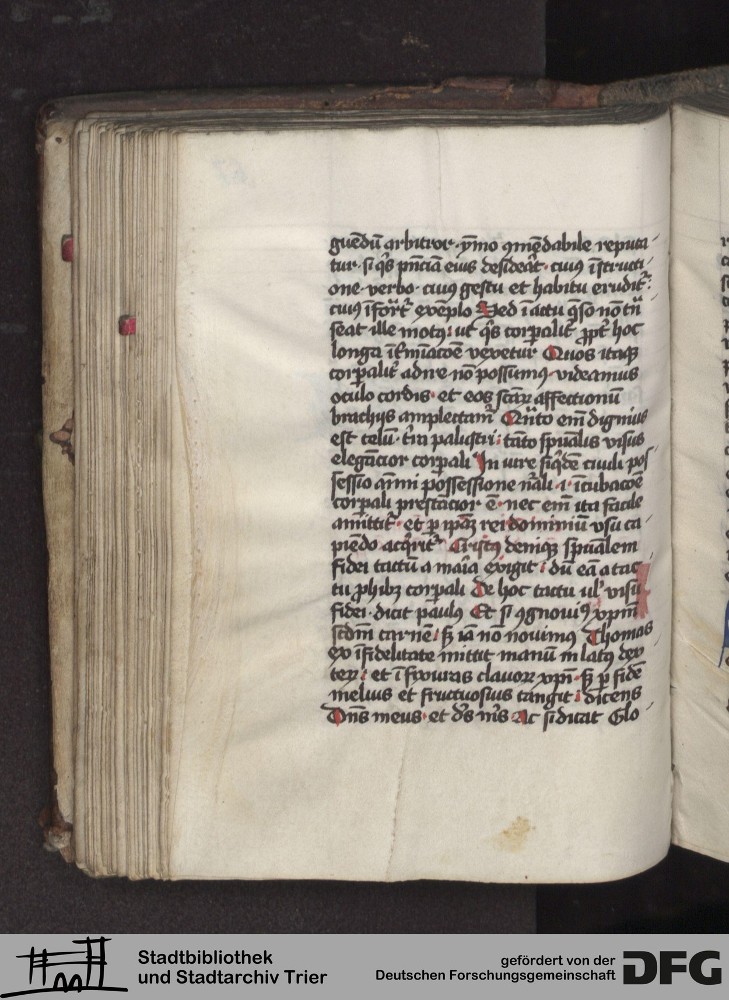 guēdū arbitror · ȳmo ꝯmēdabile reputa-
tur · si q̄s pn̄ciā eius desideāt · cuiꝰ īstructi-
one · verbo · cuiꝰ gestu et habitu erudit̄ :
cuiꝰ īfor̄t̄ exēplo Sed ī actu q̄so nō tn̄
seat ille motꝰ : ut q̄s corpalit̄ ꝓpt̄ hoc
longa vexetur Quos itaqꝫ
corꝑalit̄ ad nr̄e nō possumꝰ · videamus
oculo cordis · et eos affectionū
brachijs amplectam̄ Qn̄to em̄ dignius
est celū · t̄ra palustri : tāto spūalis visus
elegācior corꝑali In iure siq̄dē ciuili pos
sessio an̄imi possessione · ı · īcubacōe
corꝑali prestācior ē · nec em̄ ita facile
amittit̄ · et ꝑ ip̄aꝫ rei dominiū usu ca-
piēdo acq̄rit̄ Cristꝰ deniqꝫ spūalem
fidei tactū a maīa exigit : dū eā a tac
tu ꝓhibꝫ corꝑali De hoc tactu ul̓ visu
fidei · dicit paulꝰ Et si ꝯgnouiꝰ xpm̄
scd̄m carnē : sꝫ iā nō nouimꝰ Thomas
ex īfidelitate mittit manū in latꝰ dex
teꝝ : et ī fixuras clauoꝝ xpn̄ · sꝫ ꝑ fidē
melius et fructuosius tangit : dicens
Dn̄s meus · et dꝰs mꝰs Ac si dicat Glo
Stadtbibliothek
und Stadtarchiv Trier
gefördert von der
Deutschen Forschungsgemeinschaft DFG